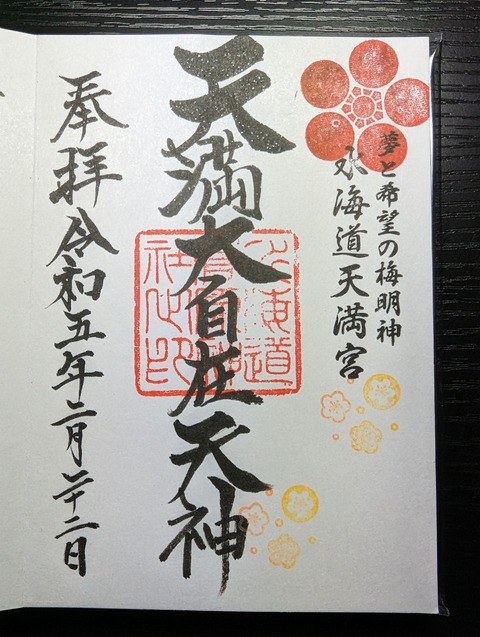 夢と希望の梅明神
水海道天満宮
天満大自在天神
奉拝 令和五年二月二十二日
水海道
社之印